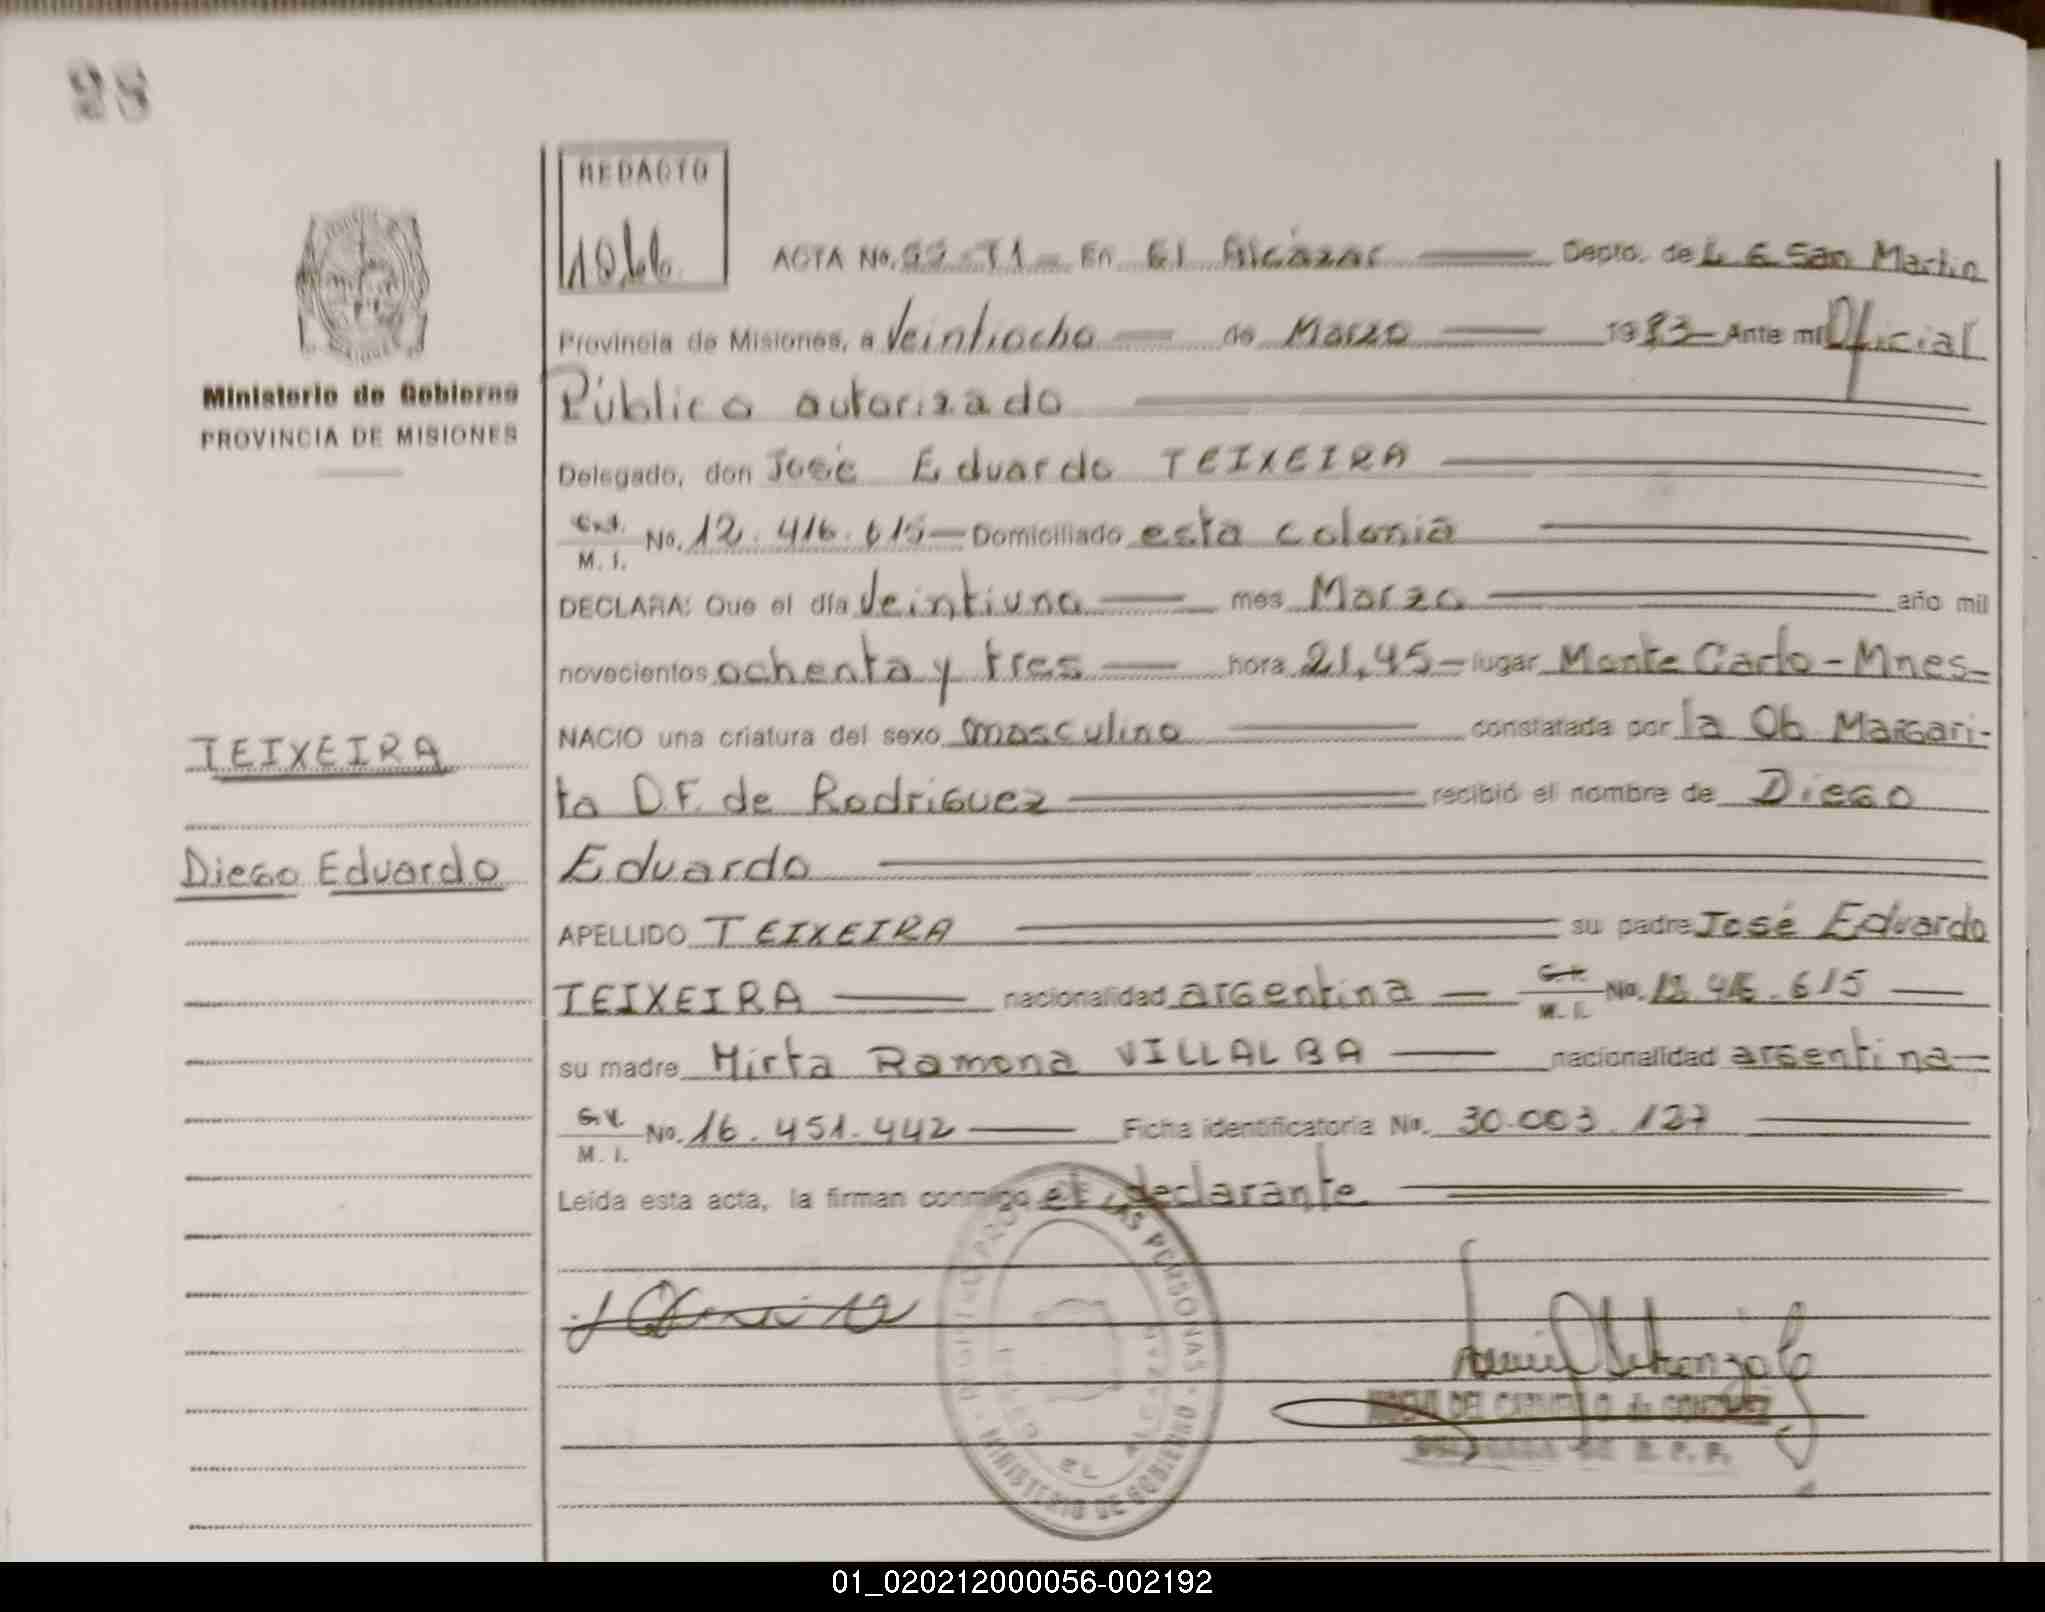 28
REDACTO
ACTA No. 99-T1 - En El Alcázar Depto. de L G San Martin
Provincia de Misiones, a Veintiocho de Marzo 1983 - Ante mi Oficial
Ministerio de Gobierno
PROVINCIA DE MISIONES
Público autorizado
Delegado, don José Eduardo TEIXEIRA
M. I. No. 12.416.615 - Domiciliado esta colonia
DECLARA: Que el día Veintiuno mes Marzo año mil
novecientos ochenta y tres hora 21,45 - lugar Monte Carlo - Mnes -
NACIO una criatura del sexo masculino constatada por la Ob. Margari-
ta D.F. de Rodriguez recibió el nombre de Diego
Eduardo
TEIXEIRA
Diego Eduardo
APELLIDO TEIXEIRA su padre José Eduardo
TEIXEIRA nacionalidad argentina M. I. No. 12.416.615
su madre Mirta Ramona VILLALBA nacionalidad argentina -
M. I. No. 16.451.442 Ficha identificatoria No. 30.003.127
Leida esta acta, la firman conmigo el declarante
LAS PERSONAS
MINISTERIO DE GOBIERNO
EL ALCAZAR
DEL de GONZALEZ
DE R. P. P.
01_020212000056-002192